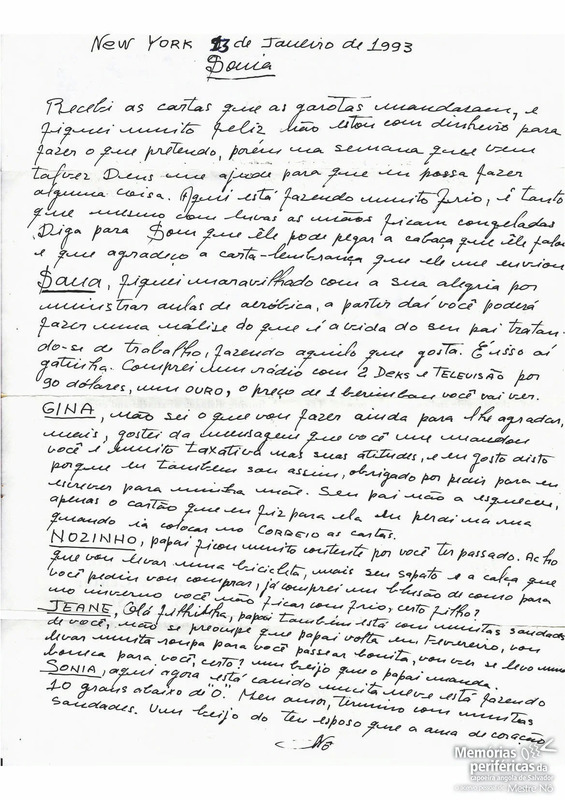 NEW YORK 23 de Janeiro de 1993
Sonia
Recebi as cartas que as garotas mandaram, e
fiquei muito feliz não estou com dinheiro para
fazer o que pretendo, porém na semana que vem
talvez Deus me ajude para que eu possa fazer
alguma coisa. Aqui está fazendo muito frio, é tanto
que mesmo com luvas as mãos ficam congeladas
Diga para Bom que êle pode pegar a cabaça que êle falou
e que agradeço a carta-lembrança que ele me enviou
, fiquei maravilhado com a sua alegria por
ministrar aulas de aeróbica, a partir daí você poderá
fazer uma análise do que é a vida do seu pai tratan-
do-se de trabalho, fazendo aquilo que gosta. É isso aí
gatinha. Comprei um rádio com 2 DEKS e TELEVISÃO por
90 dólares, um OURO, o preço de 1 berimbau você vai ver.
GINA, não sei o que vou fazer ainda para lhe agradar,
mais, gostei da mensagem que você me mandou
você é muito taxativa nas suas atitudes, e eu gosto disto
porque eu também sou assim, obrigado por pedir para eu
escrever para minha mãe. Seu pai não a esqueceu,
apenas o cartão que eu fiz para ela eu perdi na rua
quando ia colocar no CORREIO as cartas.
NOZINHO, papai ficou muito contente por você ter passado. Acho
que vou levar uma bicicleta, mais seu sapato e a calça que
você pediu vou comprar, já comprei um blusão de couro para
no inverno você não ficar com frio, certo filho?
JEANE, Olá filhinha, papai também está com muitas saudades
de você, não se preocupe que papai volta em Fevereiro, vou
levar muita roupa para você passear bonita, vou ver se levo uma
boneca para você, certo? um beijo que o papai manda.
SONIA, aqui agora está caindo muita neve está fazendo
10 graus abaixo di "O". Meu amor, termino com muitas
saudades. Um beijo do teu esposo que a ama de coração
Nô
Memórias
periféricas da
capoeira angola de Salvador
Mestre Nô